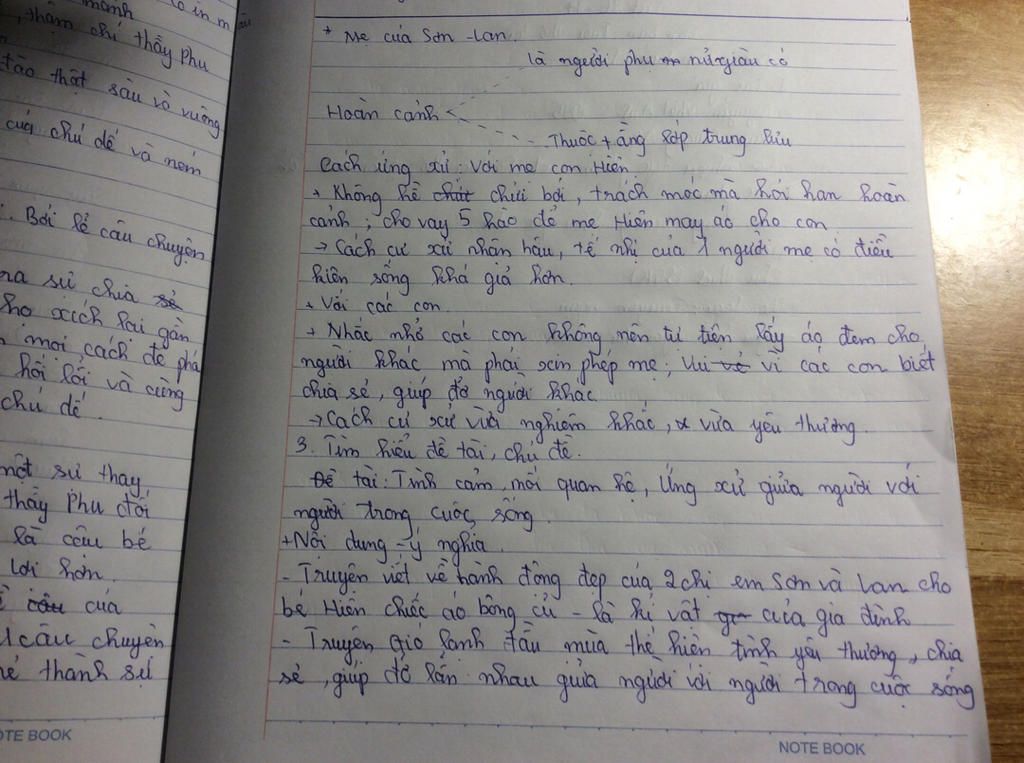 mạnh
, thậm chí thầy Phu
tão thật sâu và vuông
của chú dế và ném
Bởi lẽ câu chuyện
ra sự chia sẻ
cho xích lại gần
mọi cách để phá
hối lỗi và cùng
chú dế.
một sự thay
thầy Phu đối
là cậu bé
lợi hơn.
của
câu chuyện
thành sự
OTE BOOK
* Mẹ của Sơn - Lan.
là người phụ nữ giàu có
Hoàn cảnh
Thuộc tầng lớp trung lưu
Cách ứng xử: Với mẹ con Hiên.
+ Không hề chửi bới, trách móc mà hỏi han hoàn
cảnh; cho vay 5 hào để mẹ Hiên may áo cho con
→ Cách cư xử nhân hậu, tế nhị của 1 người mẹ có điều
kiện sống khá giả hơn.
+ Với các con.
+ Nhắc nhở các con không nên tự tiện lấy áo đem cho
người khác mà phải xin phép mẹ; Vui vì các con biết
chia sẻ, giúp đỡ người khác
→ Cách cư xử vừa nghiêm khắc, vừa yêu thương.
3. Tìm hiểu đề tài, chủ đề.
Đề tài: Tình cảm, mối quan hệ, Ứng xử giữa người với
người trong cuộc sống.
+ Nội dung - ý nghĩa.
- Truyện viết về hành động đẹp của 2 chị em Sơn và Lan cho
bé Hiên chiếc áo bông củ - là kỉ vật của gia đình
- Truyện Gió lạnh đầu mùa thể hiện tình yêu thương, chia
sẻ, giúp đỡ lẫn nhau giữa người với người trong cuộc sống
NOTE BOOK